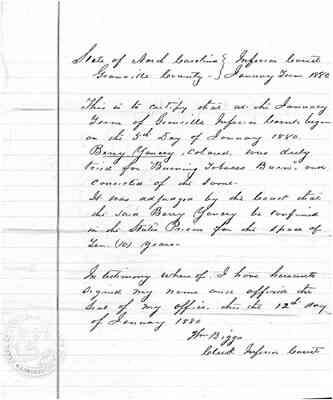 State of North Carolina } Inferior Court
Granville County - } January Term 1880
This is to certify that at the January
Term of Granville Inferior Court begun
on the 5th Day of January 1880.
Berry Yancey, colored, was duly
tried for Burning Tobacco Barn, and
convicted of the same.
It was adjudged by the Court that
the said Berry Yancey be confined
in the States Prison for the space of
Ten (10) years.
In testimony where of I have hereunto
signed my name and affixed the
Seal of my office, this the 12th day
of January 1880
Wm Biggs
Clerk Inferior Court